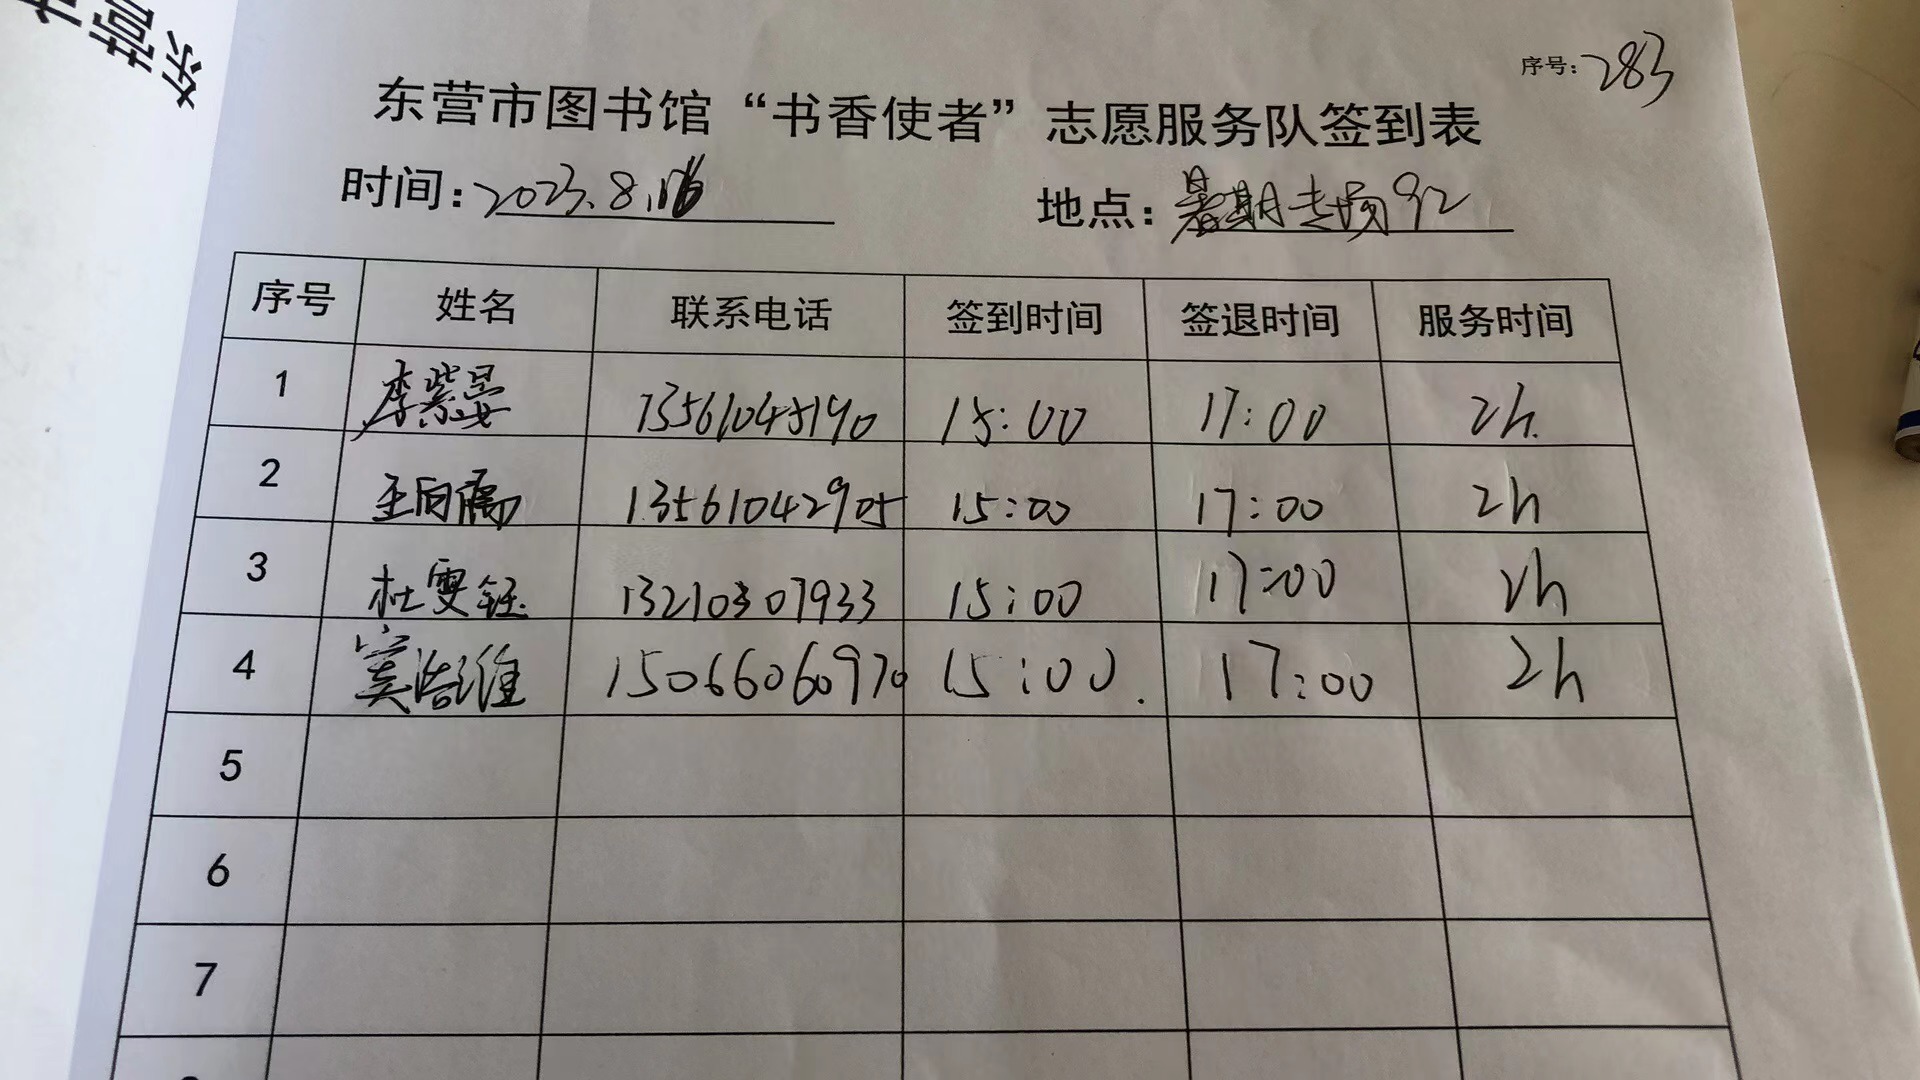 东营市
序号：283
东营市图书馆“书香使者”志愿服务队签到表
时间：2023.8.16 地点：暑期专场92
序号 姓名 联系电话 签到时间 签退时间 服务时间
1 李紫晏 13561045190 15:00 17:00 2h.
2 王向儒 13561042905 15:00 17:00 2h
3 杜雯钰 13210307933 15:00 17:00 2h
4 窦浩维 15066060970 15:00. 17:00 2h
5
6
7